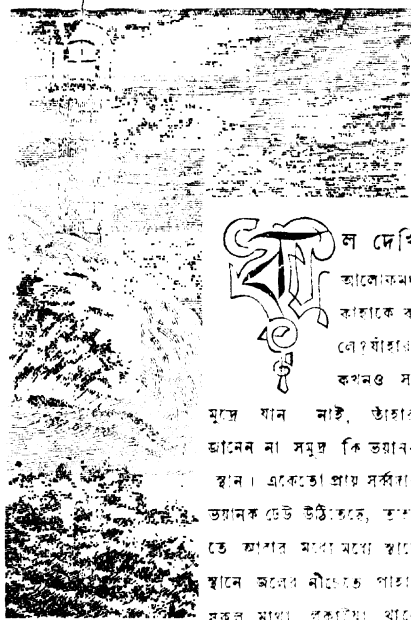 ল দেখি
আলোকম
কাহাকে ব
লে? যাঁহার
কখনও স
মুদ্রে যান নাই, তাঁহার
জানেন না সমুদ্র কি ভয়ানক
স্থান। একেতো প্রায় সর্ব্বদা
ভয়ানক ঢেউ উঠিতেছে, তাহা
তে আবার মধ্যে মধ্যে স্থানে
স্থানে জলের নীচেতে পাহা
সকল মাথা লুকাইয়া থাকে